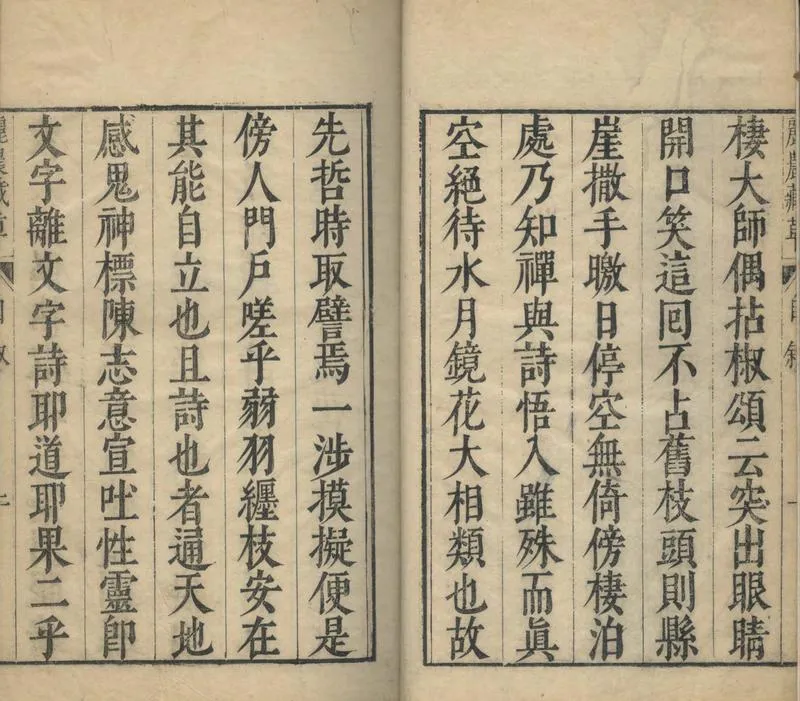 棲大師偶拈椒頌云突出眼睛
開口笑這回不占舊枝頭則縣
崖撒手曒日停空無倚傍棲泊
處乃知禪與詩悟入雖殊而眞
空絕待水月鏡花大相類也故
先哲時取譬焉一涉摸擬便是
傍人門戶嗟乎弱羽纏枝安在
其能自立也且詩也者通天地
感鬼神標陳志意宣吐性靈卽
文字離文字詩耶道耶果二乎